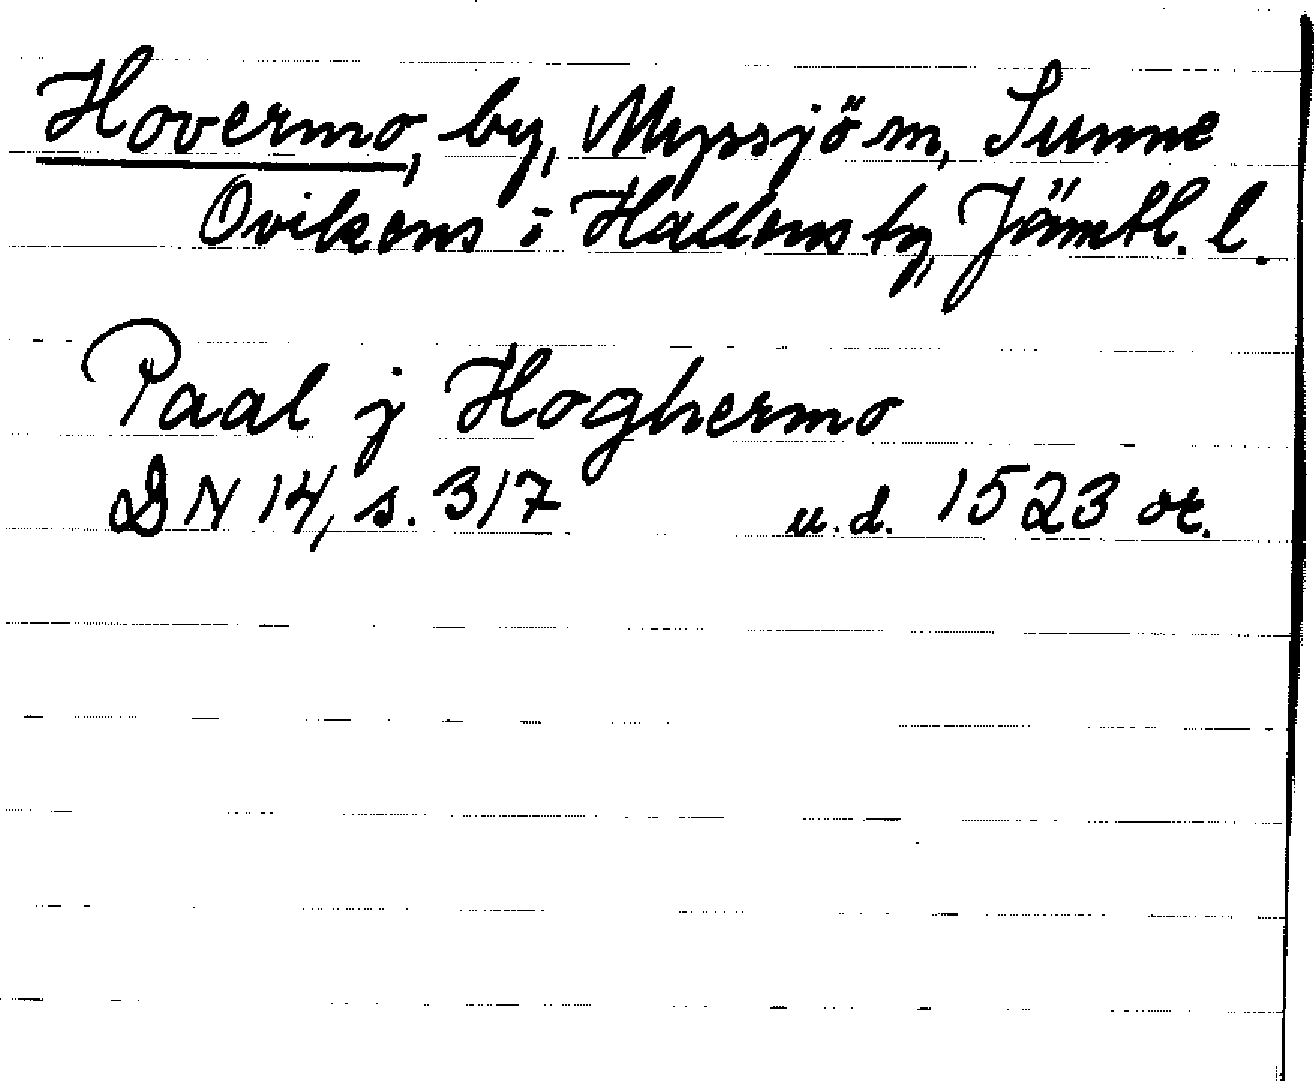 Hovermo, by, Myssjö sn, Sunne
Ovikens o Hallens tg, Jämtl. l.
Paal j Hoghermo
DN 14, s. 317 u.d. 1523 or.